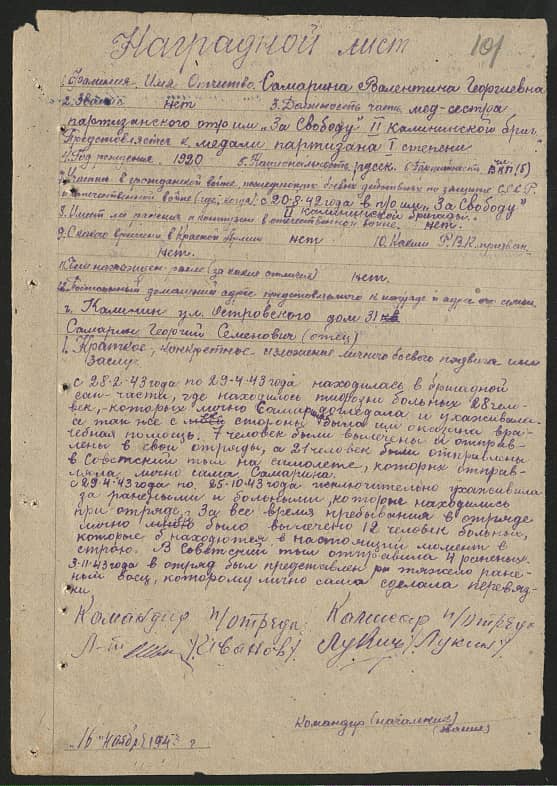 Наградной лист
101
1. Фамилия, Имя Отчество Самарина Валентина Георгиевна
2. Звание нет 3. Должность часть мед-сестра
партизанского отр им "За Свободу" II Калининской бриг.
Представляется к медали партизана I степени
4. Год рождения 1920 5. Национальность русск. 6 Партийность чл. ВКП(б)
7. Участие в гражданской войне, последующих боевых действиях по защите С.С.С.Р.
и отечественной войне (где, когда) с 20-8-42 года в п/о им "За Свободу"
II калининской бригады.
8. Имеет ли ранения и контузии в отечественной войне нет.
9. С какого времени в Красной Армии нет. 10. Каким Р.В.К. призван
нет.
11. Чем награжден ранее (за какие отличия) нет.
12. Постоянный домашний адрес представляемого к награде и адрес его семьи
г. Калинин ул. Островского дом 31
Самарин Георгий Семенович (отец)
1. Краткое, конкретное изложение личного боевого подвига или
заслуг
с 28-2-43 года по 29-4-43 года находилась в бригадной
сан-части, где находилось тифозных больных 28 чело-
век, которых лично Самарина доглядала и ухаживала.
се так же с стороны была им оказана вра-
чебная помощь. 7 человек были вылечены и отправ-
лены в свои отряды, а 21 человек были отправлены
в Советский тыл на самолете, которых отправ-
ляла лично сама Самарина.
с 29-4-43 года по 25-10-43 года исключительно ухаживала
за ранеными и больными, которые находились
при отряде. За все время пребывания в отряде
лично было вылечено 12 человек больных,
которые находятся в настоящий момент в
строю. В Советский тыл отправила 4 раненых.
9-11-43 года в отряд был представлен тяжело ране-
ный боец, которому лично сама сделала перевяз-
ки
Командир п/отряда: Комиссар п/отряда
Л-т /Иванов/ Лукин /Лукин/
Командир (начальник)
(звание)
"16" ноября 194 г